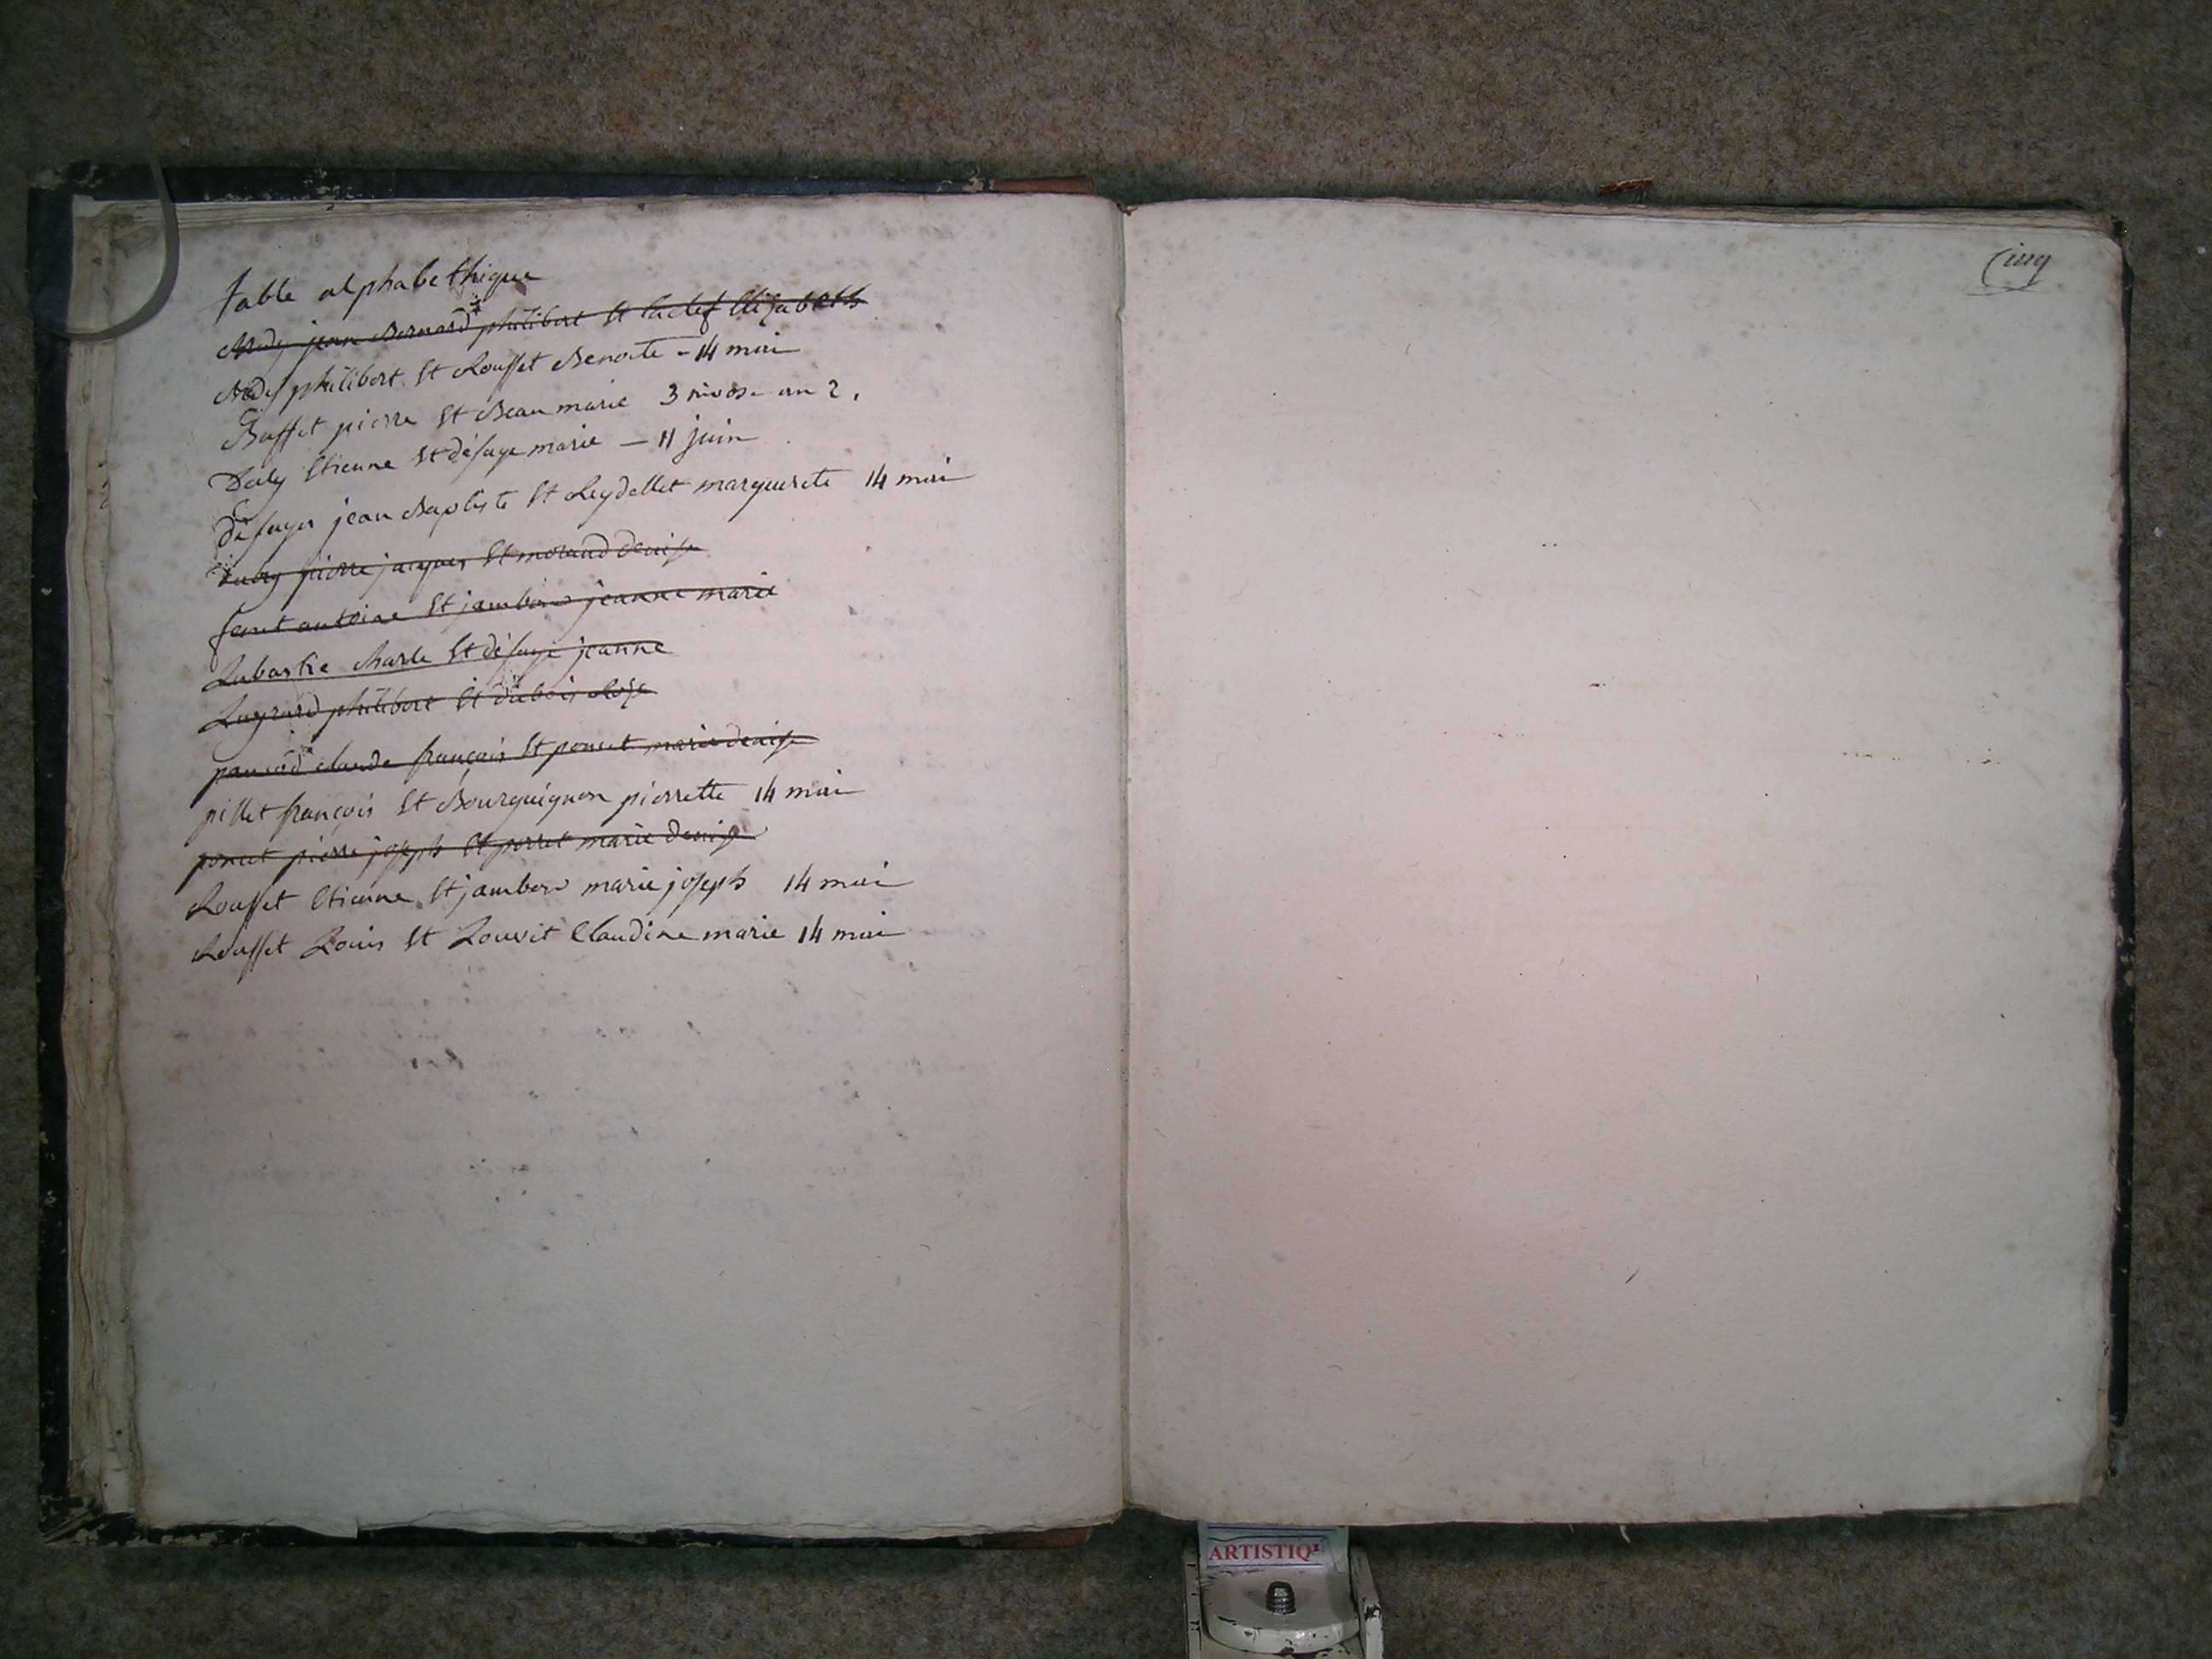 table alphabethique
jean Bernard philibert Et Elizabeth
philibert Et Rousset Benoite - 14 mai
Buffet pierre Et Beau marie 3 nivose an 2.
Daly Etienne Et défaye marie — 11 juin
défayes jean Baptiste Et Reydellet marguerete 14 mai
pierre jacques Et morand denise
feret antoine Et jambon jeanne marie
Labastie charle Et défaye jeanne
philibert Et dubois Rose
claude françois Et poncet marie denise
pillet françois Et Bourguignon pierrette 14 mai
poncet pierre joseph Et perret marie denise
Rousset Etienne Et jambon marie joseph 14 mai
Rousset Louis Et Claudine marie 14 mai
Cinq
ARTISTIQ